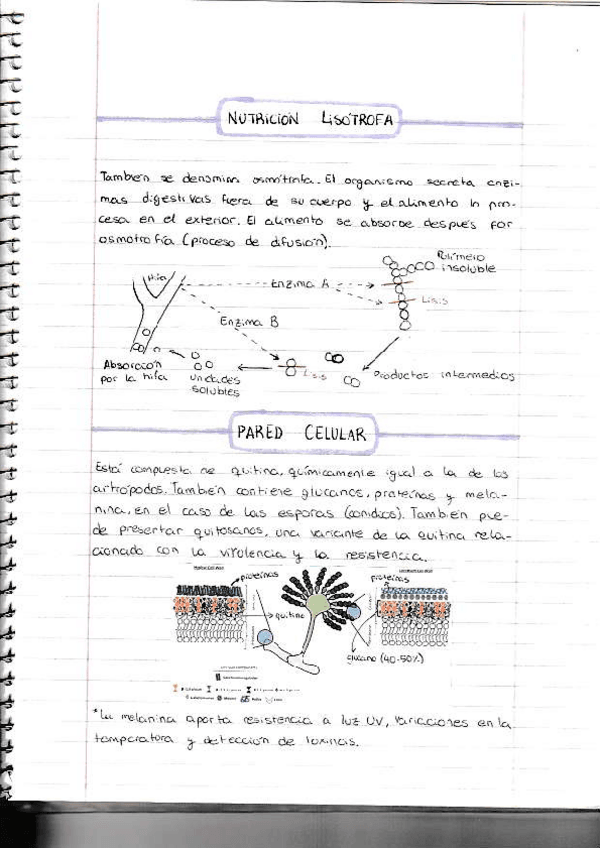 NUTRICIÓN LISÓTROFA
También se denomina osmótrofa. El organismo secreta enzi-
mas digestivas fuera de su cuerpo y el alimento lo pro-
cesa en el exterior. El alimento se absorbe después por
osmotrofía (proceso de difusión).
Hifa
Enzima A
Polímero
insoluble
Lisis
Enzima B
Absorción
por la hifa
unidades
solubles
Lisis
Productos intermedios
PARED CELULAR
Está compuesta de quitina, químicamente igual a la de los
artrópodos. También contiene glucanos, proteínas y mela-
nina, en el caso de las esporas (conidios). También pue-
de presentar quitosanos, una variante de la quitina rela-
cionado con la virulencia y la resistencia.
proteínas
proteínas
quitina
glucano (40-50%)
*La melanina aporta resistencia a luz UV, variaciones en la
temperatura y detección de toxinas.